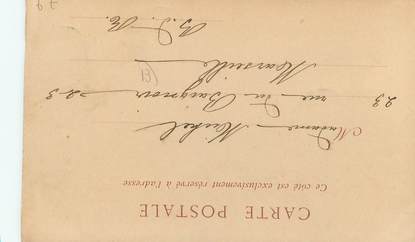 CARTE POSTALE
Ce côté est exclusivement réservé à l'adresse
Madame Michel
23 rue du Baignoir 23
Marseille
B. D. R.